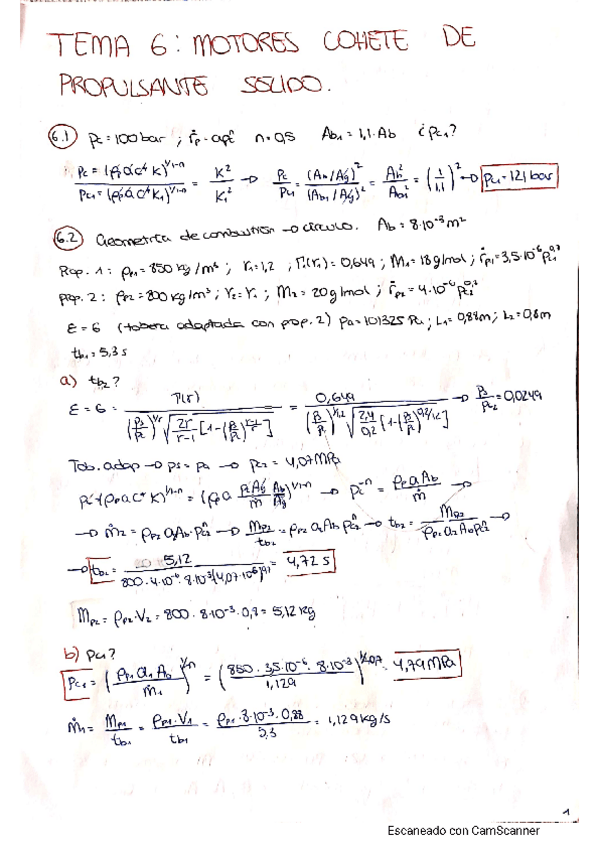 TEMA 6: MOTORES COHETE DE
PROPULSANTE SOLIDO.
6.1 Pc = 100 bar ; ṙp = a pcⁿ n = 0,5 Ab1 = 1,1·Ab ¿Pc1?
Pc = (ρp a c* K)^(1/1-n) / Pc1 = (ρp a c* K1)^(1/1-n) = K²/K1² → Pc/Pc1 = (Ab/Ag)²/(Ab1/Ag)² = Ab²/Ab1² = (1/1,1)² → Pc1 = 121 bar
6.2 Geometría de combustión → círculo. Ab = 8·10⁻³ m²
Prop. 1: ρp1 = 850 kg/m³ ; r1 = 1,2 ; Γ1(r1) = 0,649 ; M1 = 18 g/mol ; ṙp1 = 3,5·10⁻⁶ pc1^0,7
prop. 2: ρp2 = 800 kg/m³ ; r2 = r1 ; M2 = 20 g/mol ; ṙp2 = 4·10⁻⁶ pc2^0,7
ε = 6 (tobera adaptada con prop. 2) Pa = 101325 Pa ; L1 = 0,88m ; L2 = 0,8m
tb1 = 5,3 s
a) tb2?
ε = 6 = Γ(r) / ((Ps/Pc)^(1/r) √(2r/(r-1) [1-(Ps/Pc)^(r-1/r)])) = 0,649 / ((Ps/Pc)^(1/1,2) √(2,4/0,2 [1-(Ps/Pc)^(0,2/1,2)])) → Ps/Pc2 = 0,0249
Tob. adap → Ps = Pa → Pc2 = 4,07 MPa
Pc = (ρp a c* K)^(1/1-n) = (ρp a Pc Ag/ṁ Ab/Ag)^(1/1-n) → Pc^-n = ρp a Ab/ṁ →
→ ṁ2 = ρp2 a2 Ab pc2ⁿ → Mp2/tb2 = ρp2 a2 Ab pc2ⁿ → tb2 = Mp2/(ρp2 a2 Ab pc2ⁿ) →
→ tb2 = 5,12 / (800·4·10⁻⁶·8·10⁻³(4,07·10⁶)^0,7) = 4,72 s
Mp2 = ρp2·V2 = 800·8·10⁻³·0,8 = 5,12 kg
b) Pc1?
Pc1 = (ρp1 a1 Ab/ṁ1)^(-1/n) = (850·3,5·10⁻⁶·8·10⁻³/1,129)^(-1/0,7) = 4,79 MPa
ṁ1 = Mp1/tb1 = ρp1·V1/tb1 = ρp1·8·10⁻³·0,88/5,3 = 1,129 kg/s
1
Escaneado con CamScanner